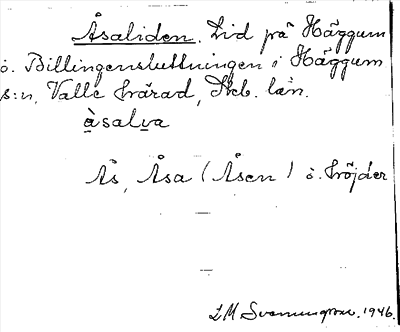 Åsaliden. Lid på Häggum
o. Billingensluttningen i Häggum
s:n, Valle härad, Skb. län.
àsalva
Ås, Åsa (Åsen) o. höjder
L M Svennungsson. 1946.